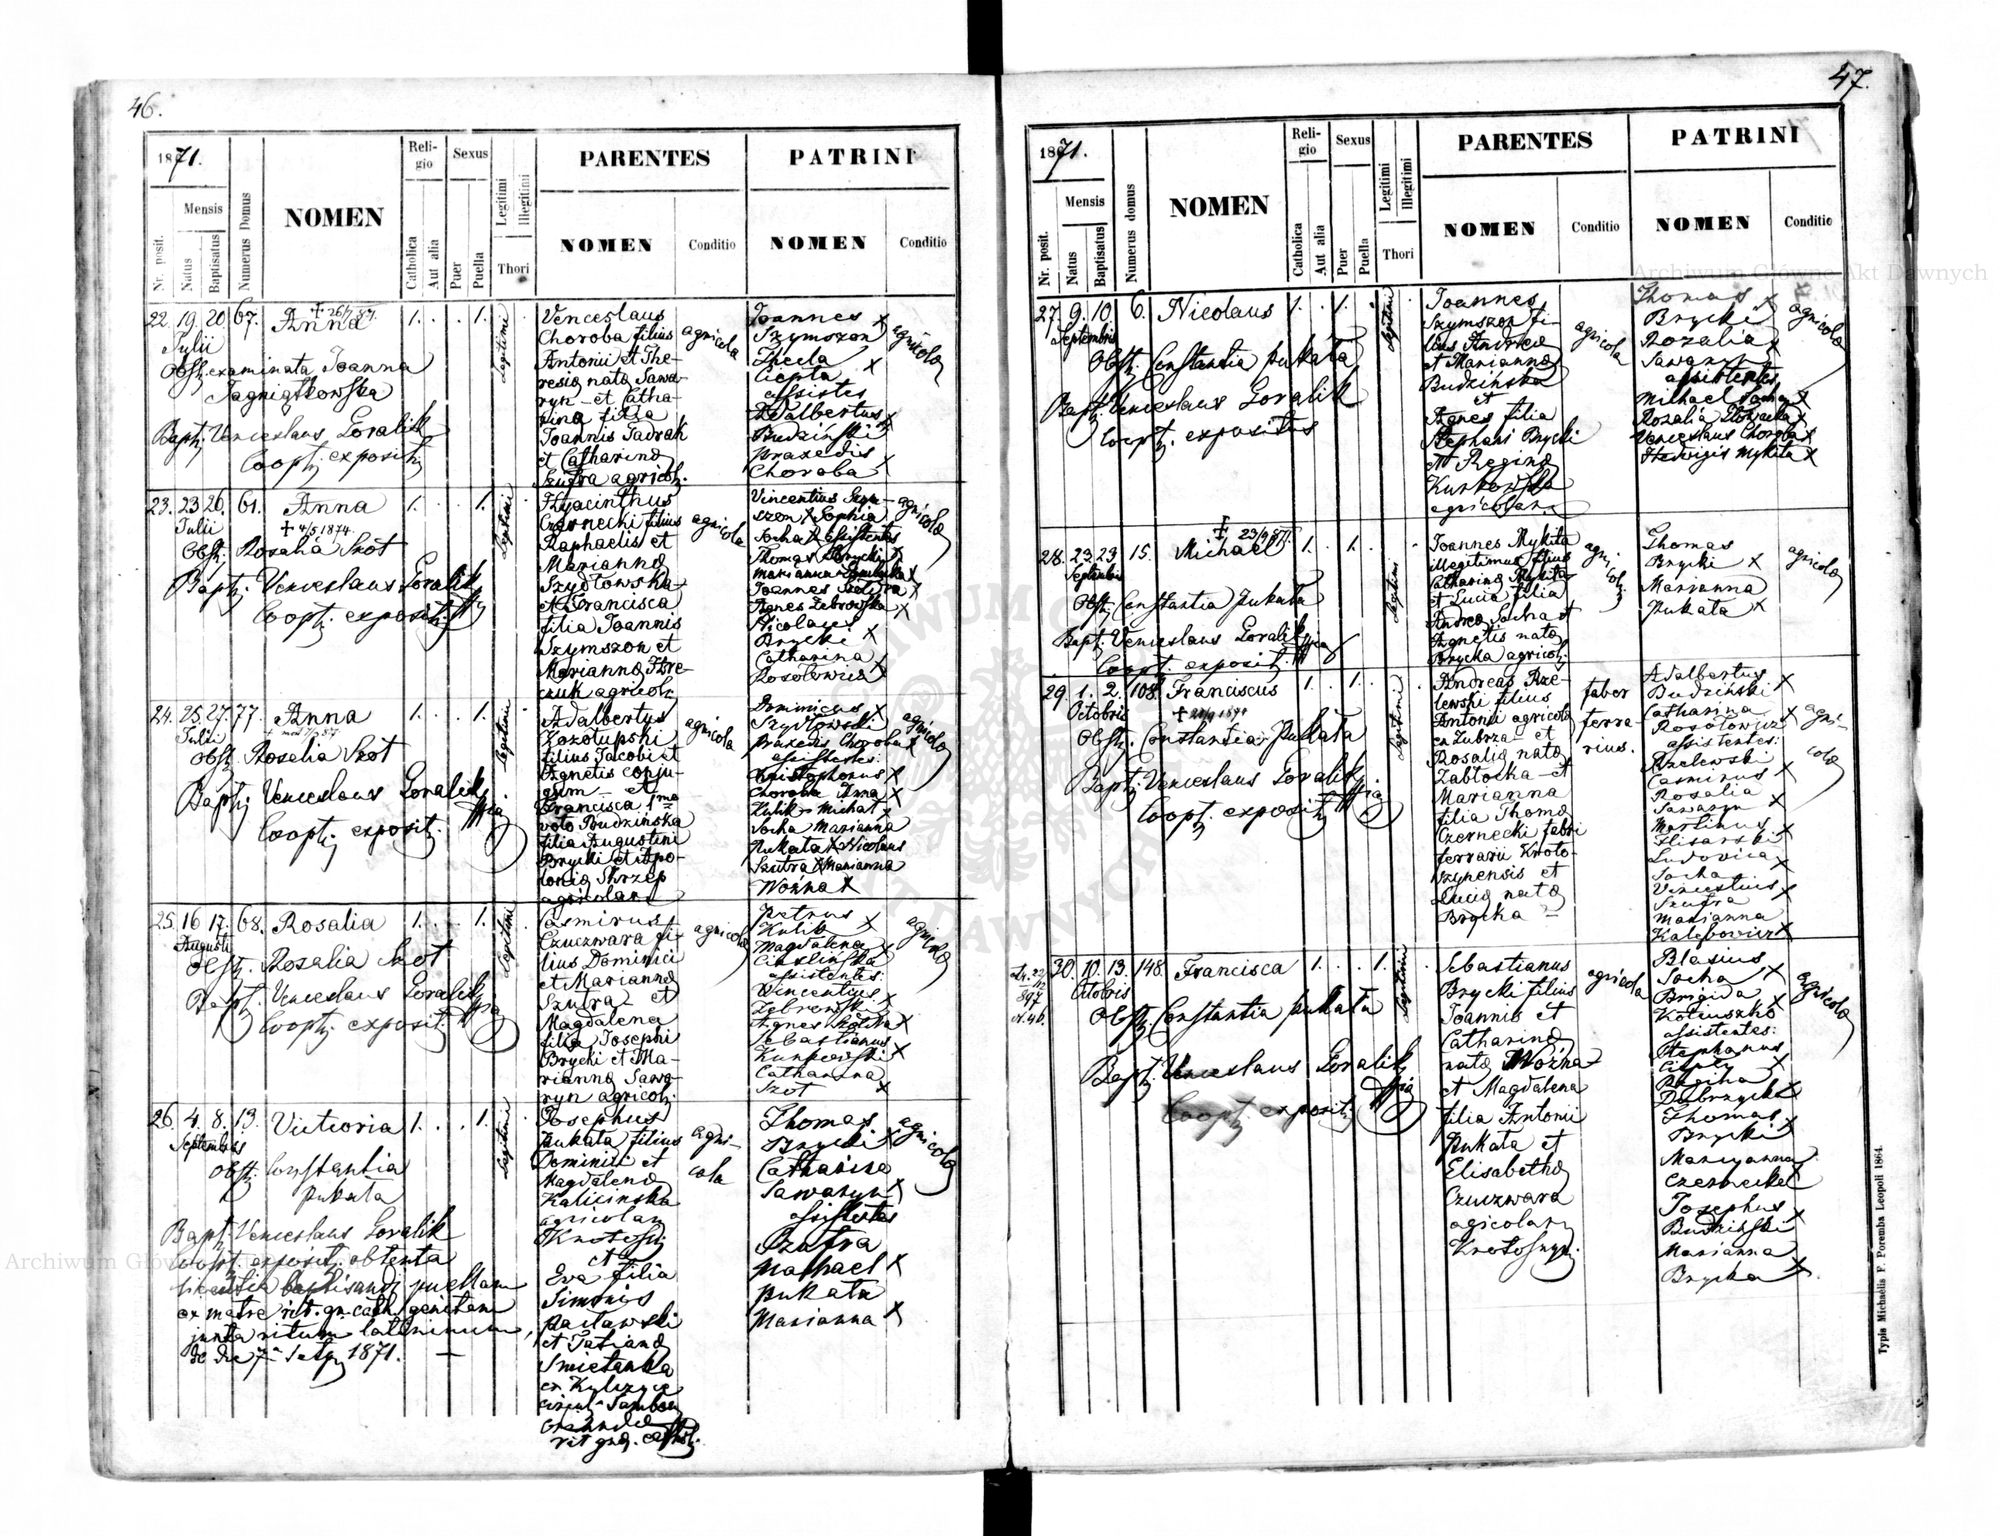 46.
1871.
Mensis
Nr. posit.
Natus
Baptisatus
Numerus Domus
NOMEN
Religio
Catholica
Aut alia
Sexus
Puer
Puella
Legitimi
Illegitimi
Thori
PARENTES
NOMEN
Conditio
PATRINI
NOMEN
Conditio
22. 19. 20. 67. Anna 1. . . 1. Legitimi
Julii
Obst. examinata Joanna
Jagniątkowska
Bapt. Venceslaus Goralik
Coopt. exposit.
Venceslaus
Choroba filius
Antonii et The-
resia nata Sawa-
ryn et Catha-
rina filia
Joannis Jadrak
et Catharina
Szufra agricol.
agricola
Joannes X
Szymszon
Thecla X
Ciepła
assistes
Adalbertus X
Budziński
Praxedis X
Choroba
agricola
23. 23 26. 61. Anna 1. . . 1. Legitimi
Julii + 4/5 1874.
Obst. Rosalia Szot
Bapt. Venceslaus Goralik
Coopt. exposit.
Hyacinthus
Czernecki filius
Raphaelis et
Marianna
Szydłowska
et Francisca
filia Joannis
Szymszon et
Marianna
agricol.
agricola
Vincentius Szym-
szon X Sophia
Socha X assistentes
Thomas Brycki X
Joannes
Agnes Żebrowska X
Nicolaus
Brycki X
Catharina
Rosołowicz X
agricola
24. 25. 27. 77. Anna 1. . . 1. Legitimi
Julii
Obst. Rosalia Szot
Bapt. Venceslaus Goralik
Coopt. exposit.
Adalbertus
Kozołupski
filius Jacobi et
Agnetis conju-
gum et
Francisca 1mo
voto Budzińska
filia Augustini
Brycki et Apo-
lonia Skrzep
agricolar.
agricola
Dominicus X
Szydłowski
Praxedis Choroba X
assistentes:
Christophorus X
Choroba Anna X
Kulik X Michał X
Socha Marianna
Pukata X Nicolaus
Szufra X Marianna
Woźna X
agricola
25. 16. 17. 68. Rosalia 1. . . 1. Legitimi
Augusti
Obst. Rosalia Szot
Bapt. Venceslaus Goralik
Coopt. exposit.
Casmirus
Czuczwara fi-
lius Dominici
et Marianna
Szufra et
Magdalena
filia Josephi
Brycki et Ma-
rianna Sawa-
ryn agricol.
agricola
Petrus X
Kulik
Magdalena X
assistentes:
Vincentius X
Żebrowski
Agnes X
Sebastianus
X
Catharina
Szot X
agricola
26. 4. 8. 13. Victoria 1. . . 1. Legitimi
Septembris
Obst. Constantia
Pukata
Bapt. Venceslaus Goralik
Coopt. exposit. obtenta
licentia baptisandi puellam
ex matre rit. gr. cath. genitam
juxta ritum latinum,
de die 7 Septb. 1871.
Josephus
Pukata filius
Dominici et
Magdalena
Kalicinska
agricolar.
et
Eva filia
Simonis
Pacławski
et Tatiana
Smietanka
rit. graec. cathol.
agri-
cola
Thomas
Brycki X
Catharina
Sawaryn X
assistentes
Szufra
Mathaei X
Pukata
Marianna X
agricola
47.
1871.
Mensis
Nr. posit.
Natus
Baptisatus
Numerus domus
NOMEN
Religio
Catholica
Aut alia
Sexus
Puer
Puella
Legitimi
Illegitimi
Thori
PARENTES
NOMEN
Conditio
PATRINI
NOMEN
Conditio
27. 9. 10. 6. Nicolaus 1. . 1. . Legitimi
Septembris
Obst. Constantia Pukata
Bapt. Venceslaus Goralik
Coopt. expositus
Joannes
Szymszon fi-
lius Andrea
et Marianna
Budzińska
et
Agnes filia
Stephani Brycki
et Regina
Kurkowska
agricolar.
agricola
Thomas X
Brycki
Rozalia X
Sawaryn
assistentes
Michael Socha X
Rozalia X
Venceslaus Choroba X
Hedwigis Mykita X
agricola
28. 23. 23. 15. Michael 1. . 1. . Legitimi
Septembris
Obst. Constantia Pukata
Bapt. Venceslaus Goralik
Coopt. exposit.
Joannes Mykita
illegitimus filius
Catharina Mykita
et Lucia filia
Andrea Socha et
Agnetis nata
Brycka agricol.
agri-
col.
Thomas
Brycki X
Marianna
Pukata X
agricola
29. 1. 2. 108. Franciscus 1. . 1. . Legitimi
Octobris
Obst. Constantia Pukata
Bapt. Venceslaus Goralik
Coopt. exposit.
Andreas Rze-
lewski filius
Antonii agricola
ex Zubrza et
Rosalia nata
Zabłocka et
Marianna
filia Thoma
Czernecki fabri
ferrarii Kroto-
szynensis et
Lucia nata
Brycka
faber
ferra
rius.
Adalbertus X
Budziński
Catharina X
Rosołowicz
assistentes:
Rzelewski X
Casmirus
Rosalia
Sawaryn X
Martinus X
Ludovica X
Socha
Venceslaus X
Szufra
Marianna
X
agri-
cola
30. 10. 13. 148. Francisca 1. . . 1. Legitimi
Octobris
Obst. Constantia Pukata
Bapt. Venceslaus Goralik
Coopt. exposit.
Sebastianus
Brycki filius
Joannis et
Catharina
nata Woźna
et Magdalena
filia Antonii
Pukata et
Elisabetha
Czuczwara
agricolar.
Krotoszyn.
agricola
Blasius
Socha X
Brigida X
Kościuszko
assistentes:
Stephanus X
Regina
Dobrzycka X
Thomas
Brycki X
Maryanna
Czernecka X
Josephus X
Budziński
Marianna
Brycka X
agricola
Typis Michaëlis F. Poremba Leopoli 1864.
Archiwum Główne Akt Dawnych